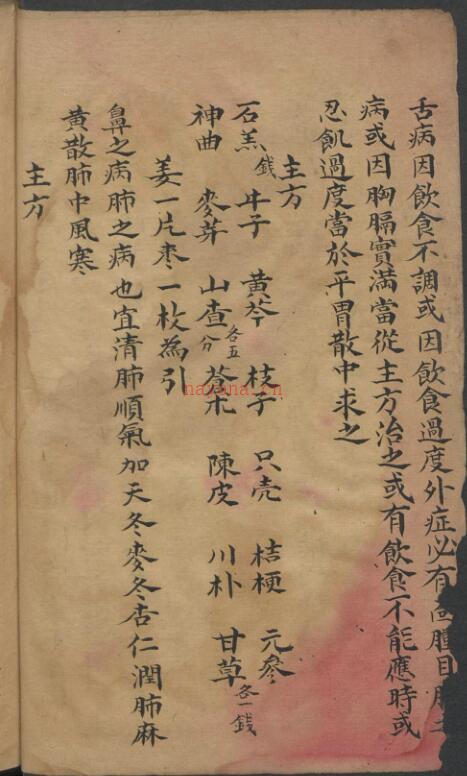 舌病因飲食不調或因飲食過度外症必有面腫目
病或因胸膈實滿當從主方治之或有飲食不能應時或
忍飢過度當於平胃散中求之
主方
石羔钱 牛子 黄芩 枝子 只壳 桔梗 元參
神曲 麥芽 山查各五分 蒼朮 陳皮 川朴 甘草各一錢
姜一片枣一枚為引
鼻之病肺之病也宜清肺順氣加天冬麥冬杏仁潤肺麻
黄散肺中風寒
主方